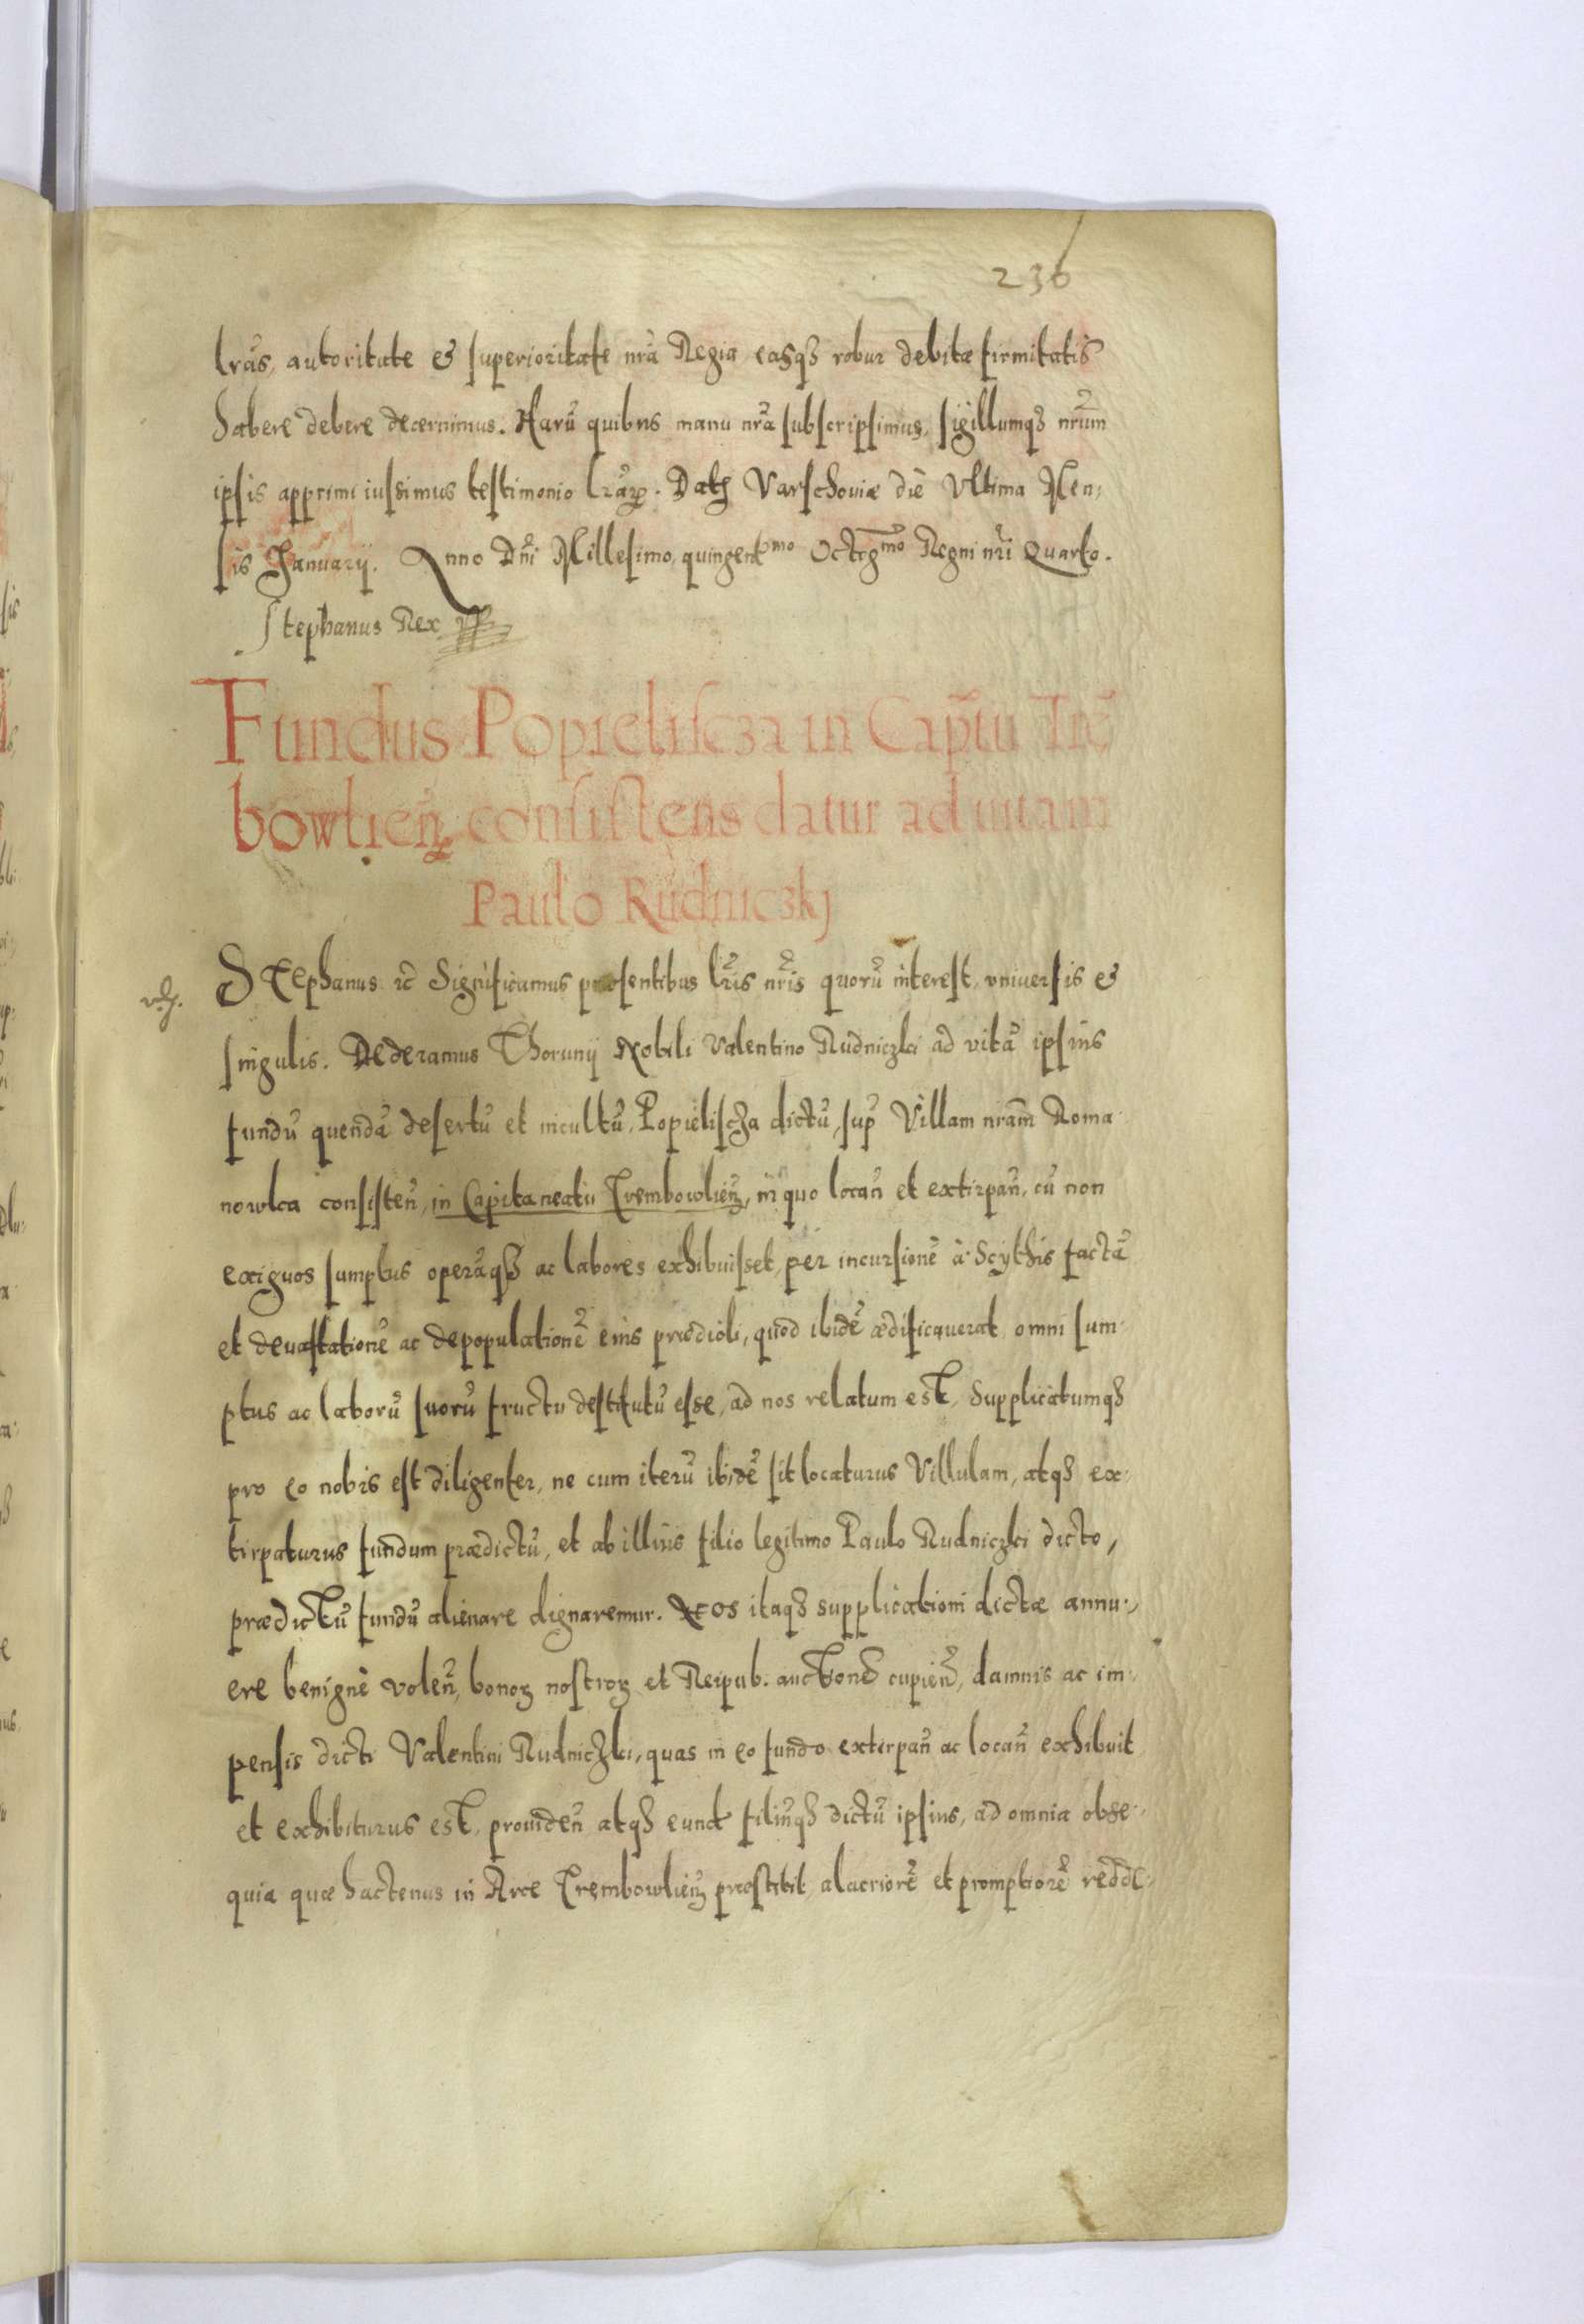 236
lrãs, autoritate & superioritate nrã Regia easq3 robur debitæ firmitatis
habere debere decernimus. Harũ quibus manu nrã subscripsimus, sigillumq3 nrũm
ipsis apprimi iussimus testimonio lrãꝝ. Datꝫ Varschoviæ die Ultima Men,
sis Januarij. Anno Dñi Millesimo quingentᵐᵒ Octtgᵐᵒ Regni nr̃i Quarto.
Stephanus Rex
Fundus Popielisc3a in Cap̃tu Trẽ
bowlieñ consistens datur ad uitam
Paulo Rudnic3kj
Stephanus rc̃ Significamus præsentibus lr̃is nr̃is quorũ interest, vniuersis &
singulis. Dederamus Thorunij Nobili Valentino Rudniczki ad vitã ipsius
fundũ quendã desertũ et incultũ, Popieliscza dictũ, sup̃ Villam nrãm Roma
nowka consisteñ, in Capitaneatu Trembowlieñ, in quo locañ et extirpañ, cũ non
exiguos sumptus operãq3 ac labores exhibuisset, per incursionẽ à Scythis factã
et deuastationẽ ac depopulationẽ eius prædioli, quod ibidẽ ædificauerat omni sum-
ptus ac laborũ suorũ fructu destitutũ esse, ad nos relatum est, Supplicatumq3
pro eo nobis est diligenter, ne cum iterũ ibidẽ sit locaturus Villulam, atq3 ex-
tirpaturus fundum prædictũ, et ab illius filio legitimo Paulo Rudniczki dicto,
prædictũ fundũ alienare dignaremur. Nos itaq3 supplicationi dictæ annu-
ere benignè voleñ, bonoꝝ nostroꝝ et Reipub. auctionẽ cupieñ, damnis ac im-
pensis dicti Valentini Rudniczki, quas in eo fundo extirpañ ac locañ exhibuit
et exhibiturus est, prouideñ atq3 eund filiũq3 dictũ ipsius, ad omnia obse-
quia quæ hactenus in Arce Trembowlieñ præstitit, alacriorẽ et promptiorẽ redde-